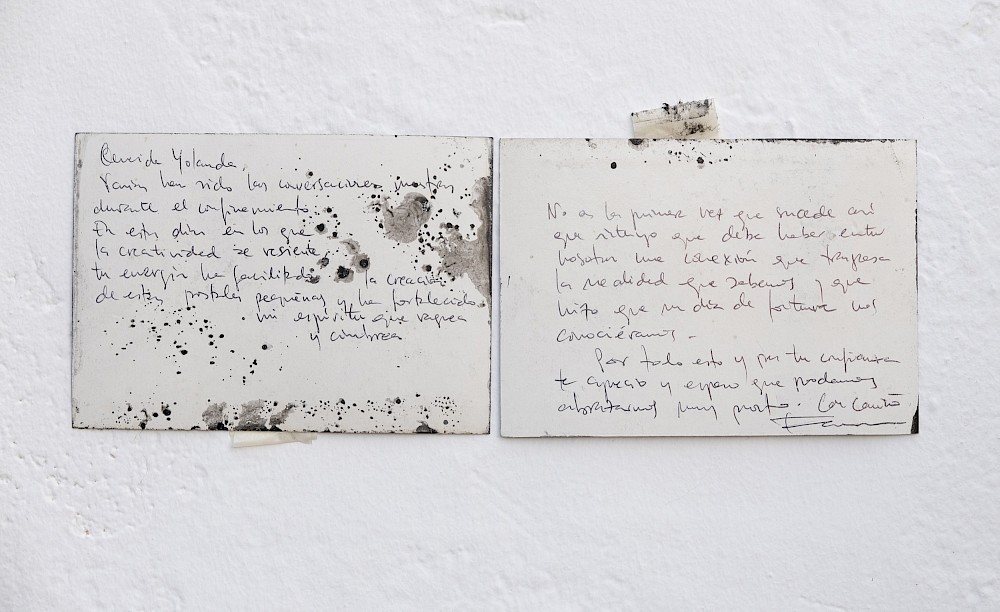 Querida Yolanda,
Varias han sido las conversaciones nuestras
durante el confinamiento.
En estos días en los que
la creatividad se resiente,
tu energía ha facilitado la creación
de estas postales pequeñas y ha fortalecido
mi espíritu que vaguea
y cimbrea
No es la primera vez que sucede así
que intuyo que debe haber entre
nosotros una conexión que traspasa
la realidad que sabemos y que
hizo que un día de fortuna nos
conociéramos.
Por todo esto y por tu confianza
te aprecio y espero que podamos
abrazarnos muy pronto. Con cariño